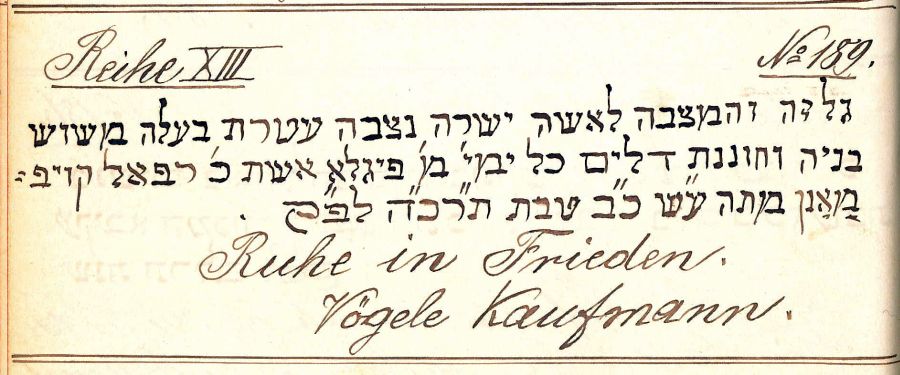 Reihe XIII
No 189.
גל זה והמצבה לאשה ישרה נצבה עטרת בעלה משוש
בניה וחוננת דלים כל ימי' מ' פיגלא אשת כ' רפאל קויפ-
מאַנן מתה ע"ש כ"ב טבת תרכ"ה לפ"ק .
Ruhe in Frieden.
Vögele Kaufmann.